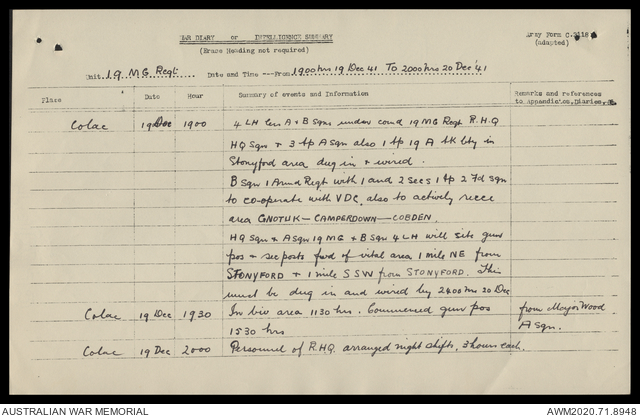 WAR DIARY or INTELLIGENCE SUMMARY
(Erase Heading not required)
Army Form C.2118
(adapted)
Unit 19 MG Regt Date and Time ---From 1900 hrs 19 Dec 41 To 2000 hrs 20 Dec '41
Place Date Hour Summary of events and Information Remarks and references to Appendices, Diaries,
Colac 19 Dec 1900 4 LH less A + B Sqns under comd 19 MG Regt R.H.Q
HQ Sqn + 3 tp A Sqn also 1 tp 19 A tk bty in
Stonyford area dug in + wired.
B Sqn 1 Armd Regt with 1 and 2 secs 1 tp 2 Fd Sqn
to co-operate with VDC, also to actively recce
area GNOTUK - CAMPERDOWN - COBDEN.
HQ Sqn + A Sqn 19 MG + B Sqn 4 LH will site gun
pos + sec posts fwd of vital area 1 mile NE from
STONYFORD + 1 mile SSW from STONYFORD. This
must be dug in and wired by 2400 hrs 20 Dec
Colac 19 Dec 1930 In biv area 1130 hrs. Commenced gun pos from Major Wood
1530 hrs A Sqn.
Colac 19 Dec 2000 Personnel of R.H.Q. arranged night shifts, 3 hours each.
AUSTRALIAN WAR MEMORIAL AWM2020.71.8948